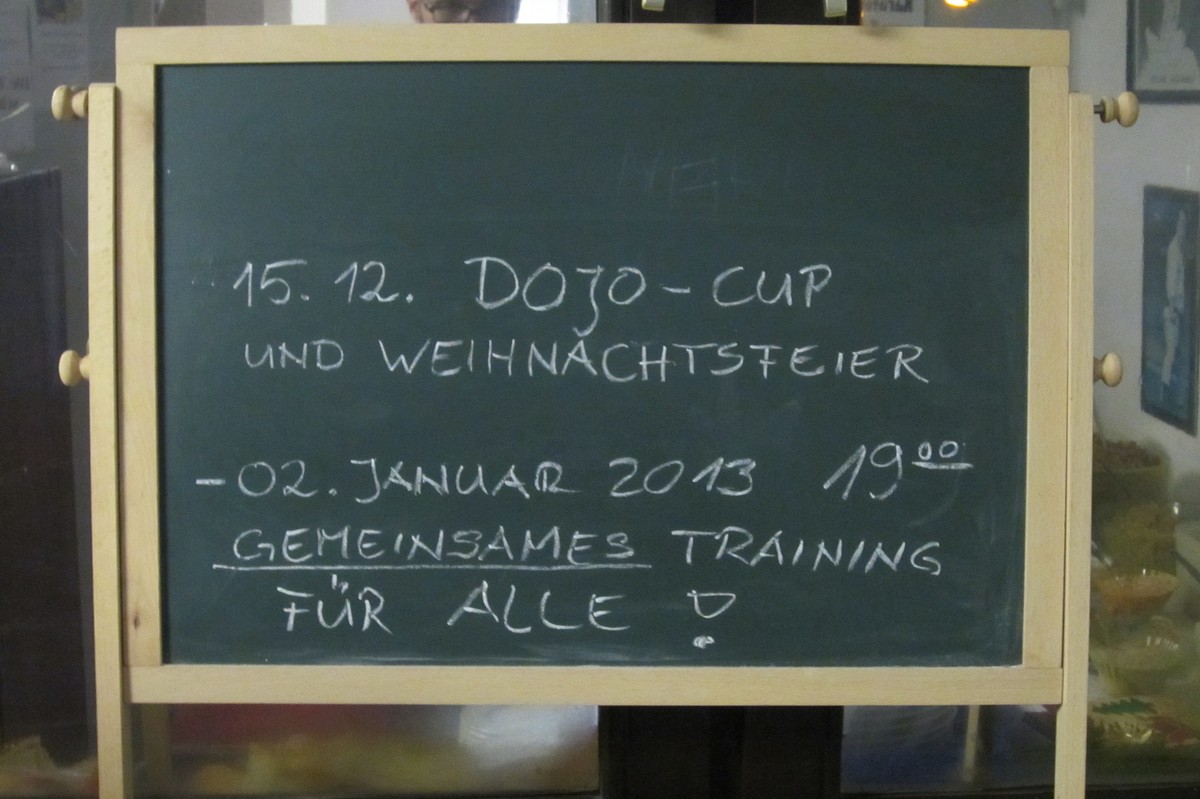 15. 12. DOJO - CUP
UND WEIHNACHTSFEIER
- 02. JANUAR 2013 19⁰⁰
GEMEINSAMES TRAINING
FÜR ALLE !